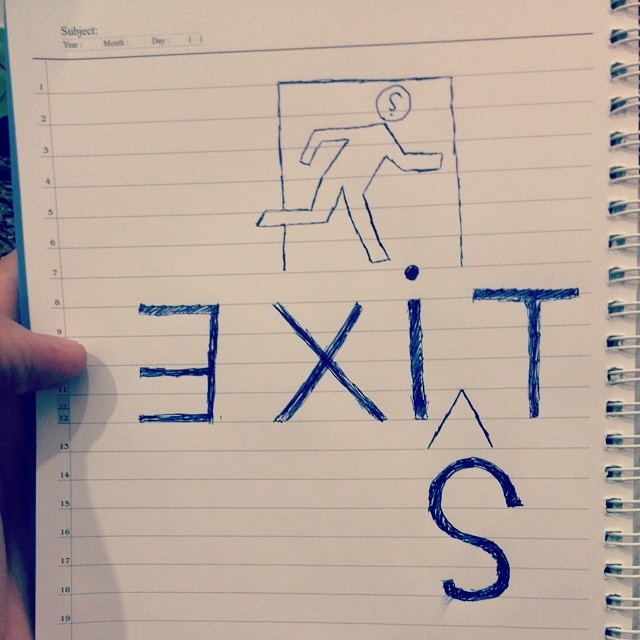 Subject:
Year : Month : Day : ( )
1
2
3
4
5
6
7
8
9
ƎXiT
11
12
13
14
15
S
16
17
18
19